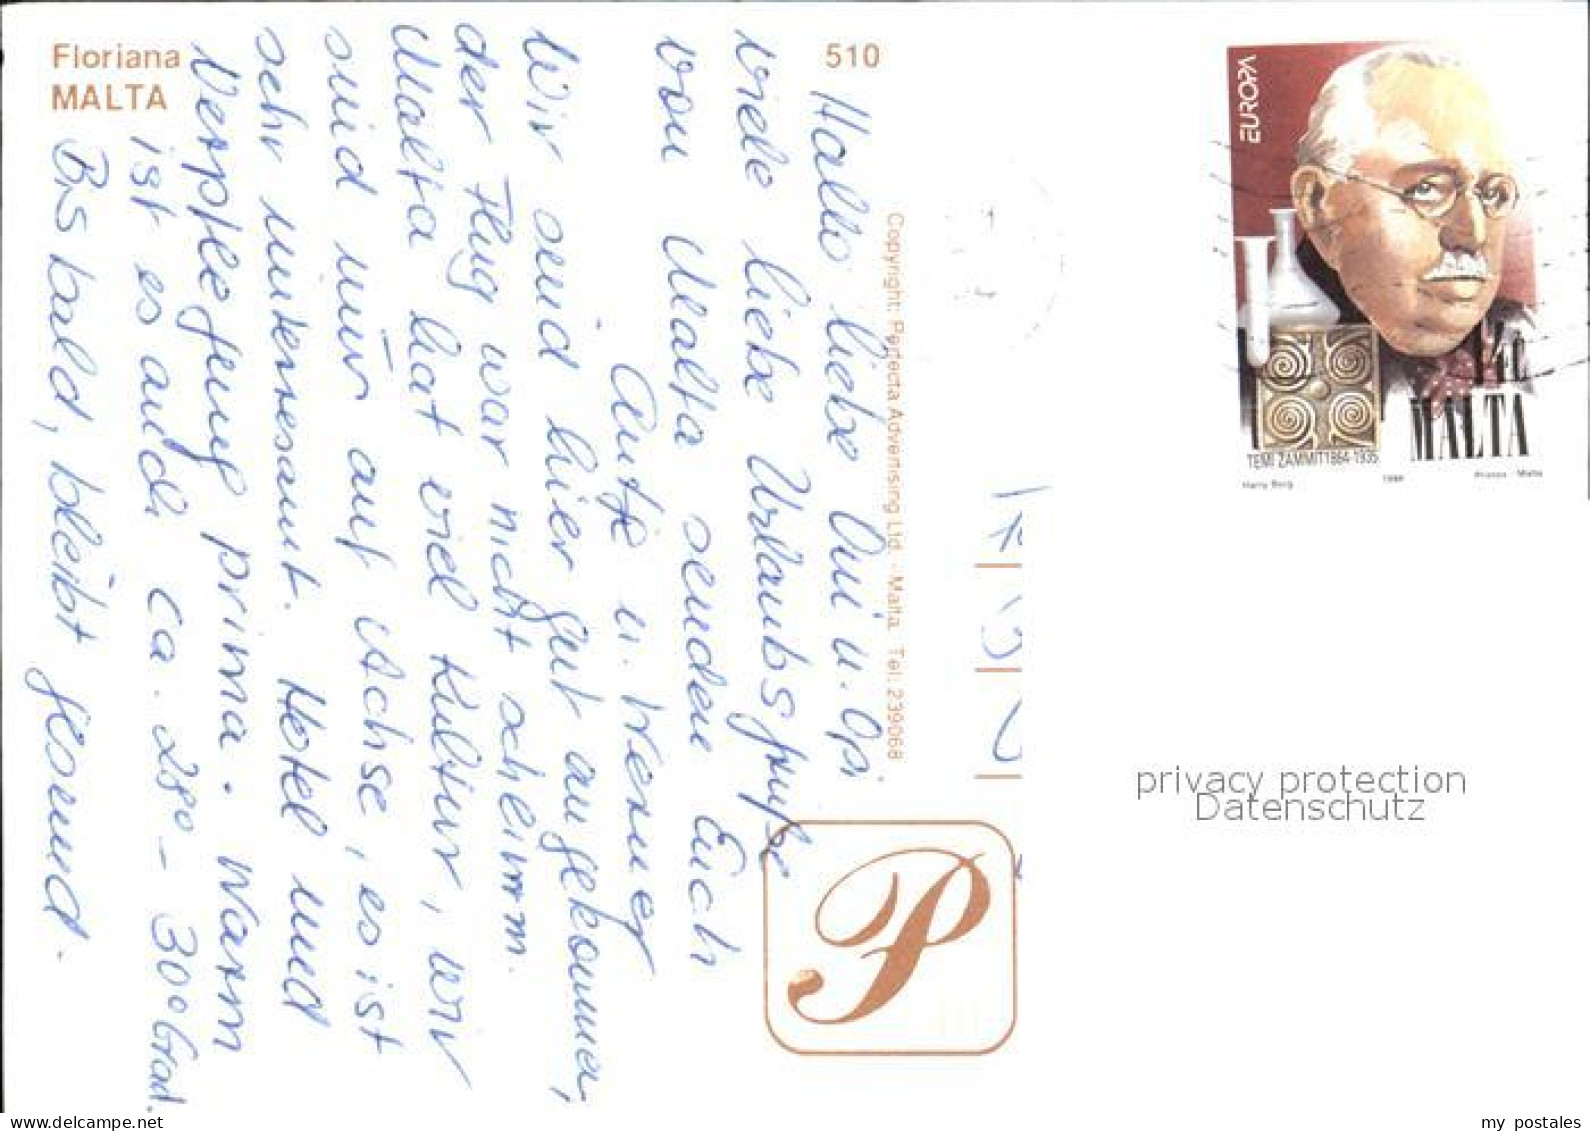 Floriana
MALTA
510
Hallo liebe Omi u. Opi.
viele liebe Urlaubsgrüße
von Malta senden Euch
Antje u. Werner
Wir sind hier gut angekommen,
der Flug war nicht schlimm.
Malta hat viel Kultur, wir
sind nur auf Achse, es ist
sehr interessant. Hotel und
Verpflegung prima. Warm
ist es auch ca. 28° - 30° Grad.
Bis bald, bleibt gesund.
Copyright: Perfecta Advertising Ltd. - Malta. Tel: 239068
P
EUROPA
MALTA
TEMI ZAMMIT 1864-1935
Harry Borg
1994
Printex - Malta
privacy protection
Datenschutz
my postales